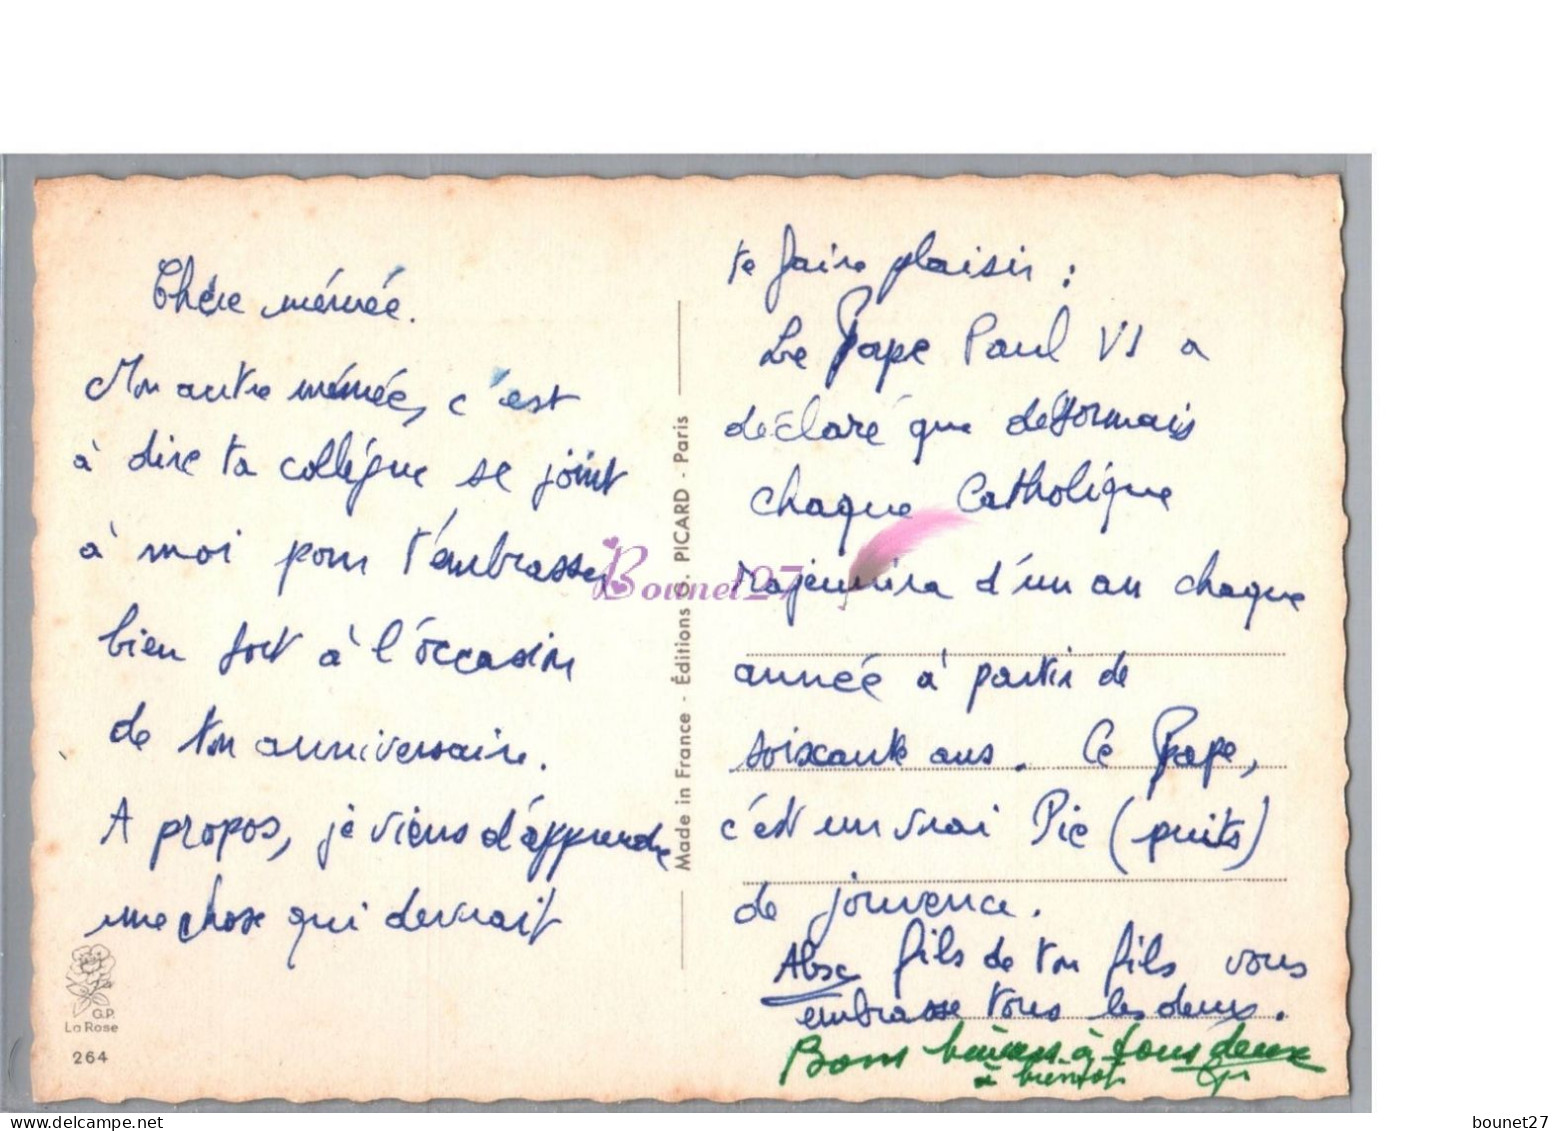 Chère mémée.
Mon autre mémée, c'est
à dire ta collègue se joint
à moi pour t'embrasser
bien fort à l'occasion
de ton anniversaire.
A propos, je viens d'apprendre
une chose qui devrait
G.P.
La Rose
264
Made in France - Éditions G. PICARD - Paris
Bounet27
te faire plaisir :
Le Pape Paul VI a
déclaré que désormais
chaque Catholique
rajeunira d'un an chaque
année à partir de
soixante ans. Ce Pape,
c'est un vrai Pie (puits)
de jouvence.
fils de ton fils vous
embrasse tous les deux.
Bons baisers à tous deux
à bientôt
bounet27